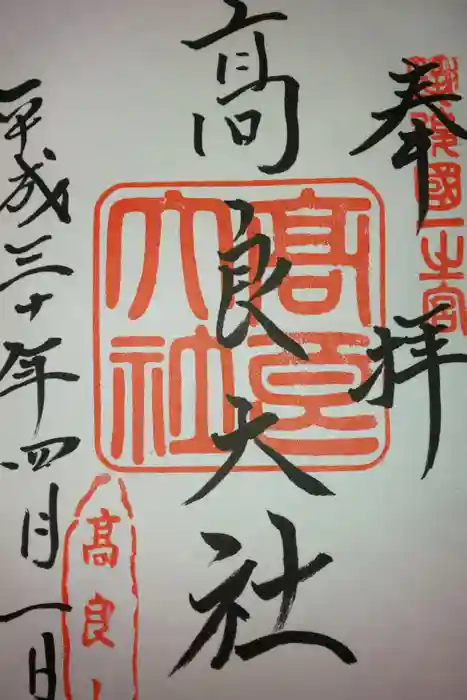 奉拝
筑後國一之宮
髙良大社
高良大社
平成三十年四月一日
高良